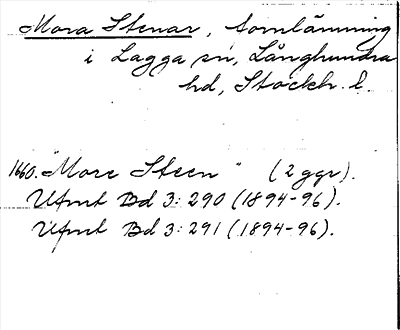 Mora Stenar, tomlämning
i Lagga sn, Långhundra
hd, Stockh. l.
1660. "More Steen" (2 ggr).
Ufmt Bd 3: 290 (1894-96).
Ufmt Bd 3: 291 (1894-96).